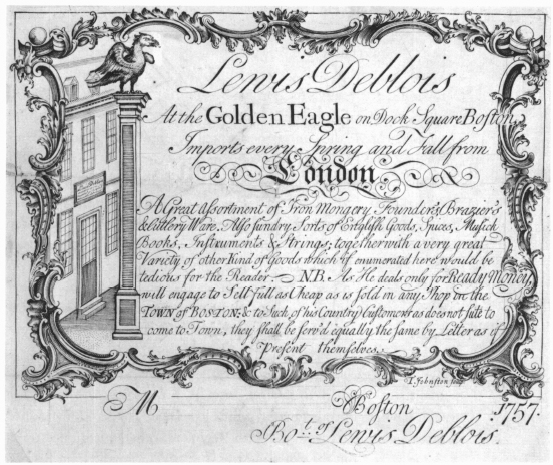 Lewis Deblois
At the Golden Eagle on Dock Square Boston,
Imports every Spring and Fall from
London.
A Great Assortment of Iron Mongery Founders, Brazier's
& Cuttlery Ware, Also sundry Sorts of English Goods, Spices, Musick
Books, Instruments & Strings; together with a very great
Variety of other Kind of Goods which if enumerated here would be
tedious for the Reader. N.B. As He deals only for Ready Money,
will engage to Sell full as Cheap as is sold in any Shop in the
TOWN of BOSTON; & to Such, of his Country Customers as does not suite to
come to Town, they shall be serv'd equally the same by Letter as if
Present themselves.
I. Johnston sculp
M Boston 1757.
Bot. of Lewis Deblois.